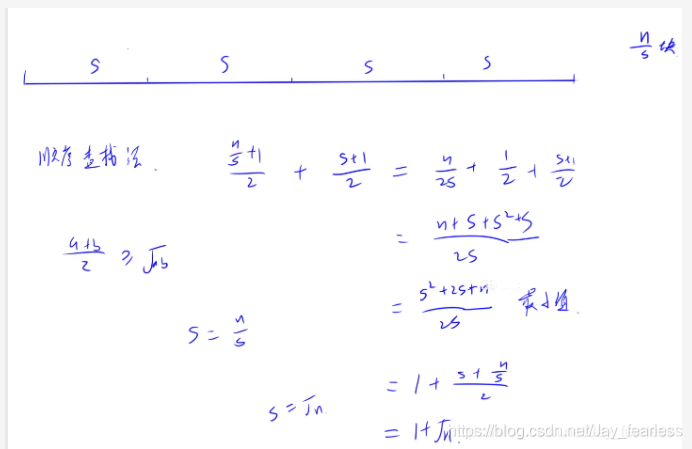 S S S S n/s 块
顺序查找法. (n/s+1)/2 + (s+1)/2 = n/2s + 1/2 + (s+1)/2
= (n+s+s²+s)/2s
(a+b)/2 ≥ √ab
= (s²+2s+n)/2s 最小值.
s = n/s
= 1 + (s + n/s)/2
s = √n
= 1+√n.
https://blog.csdn.net/Jay_fearless